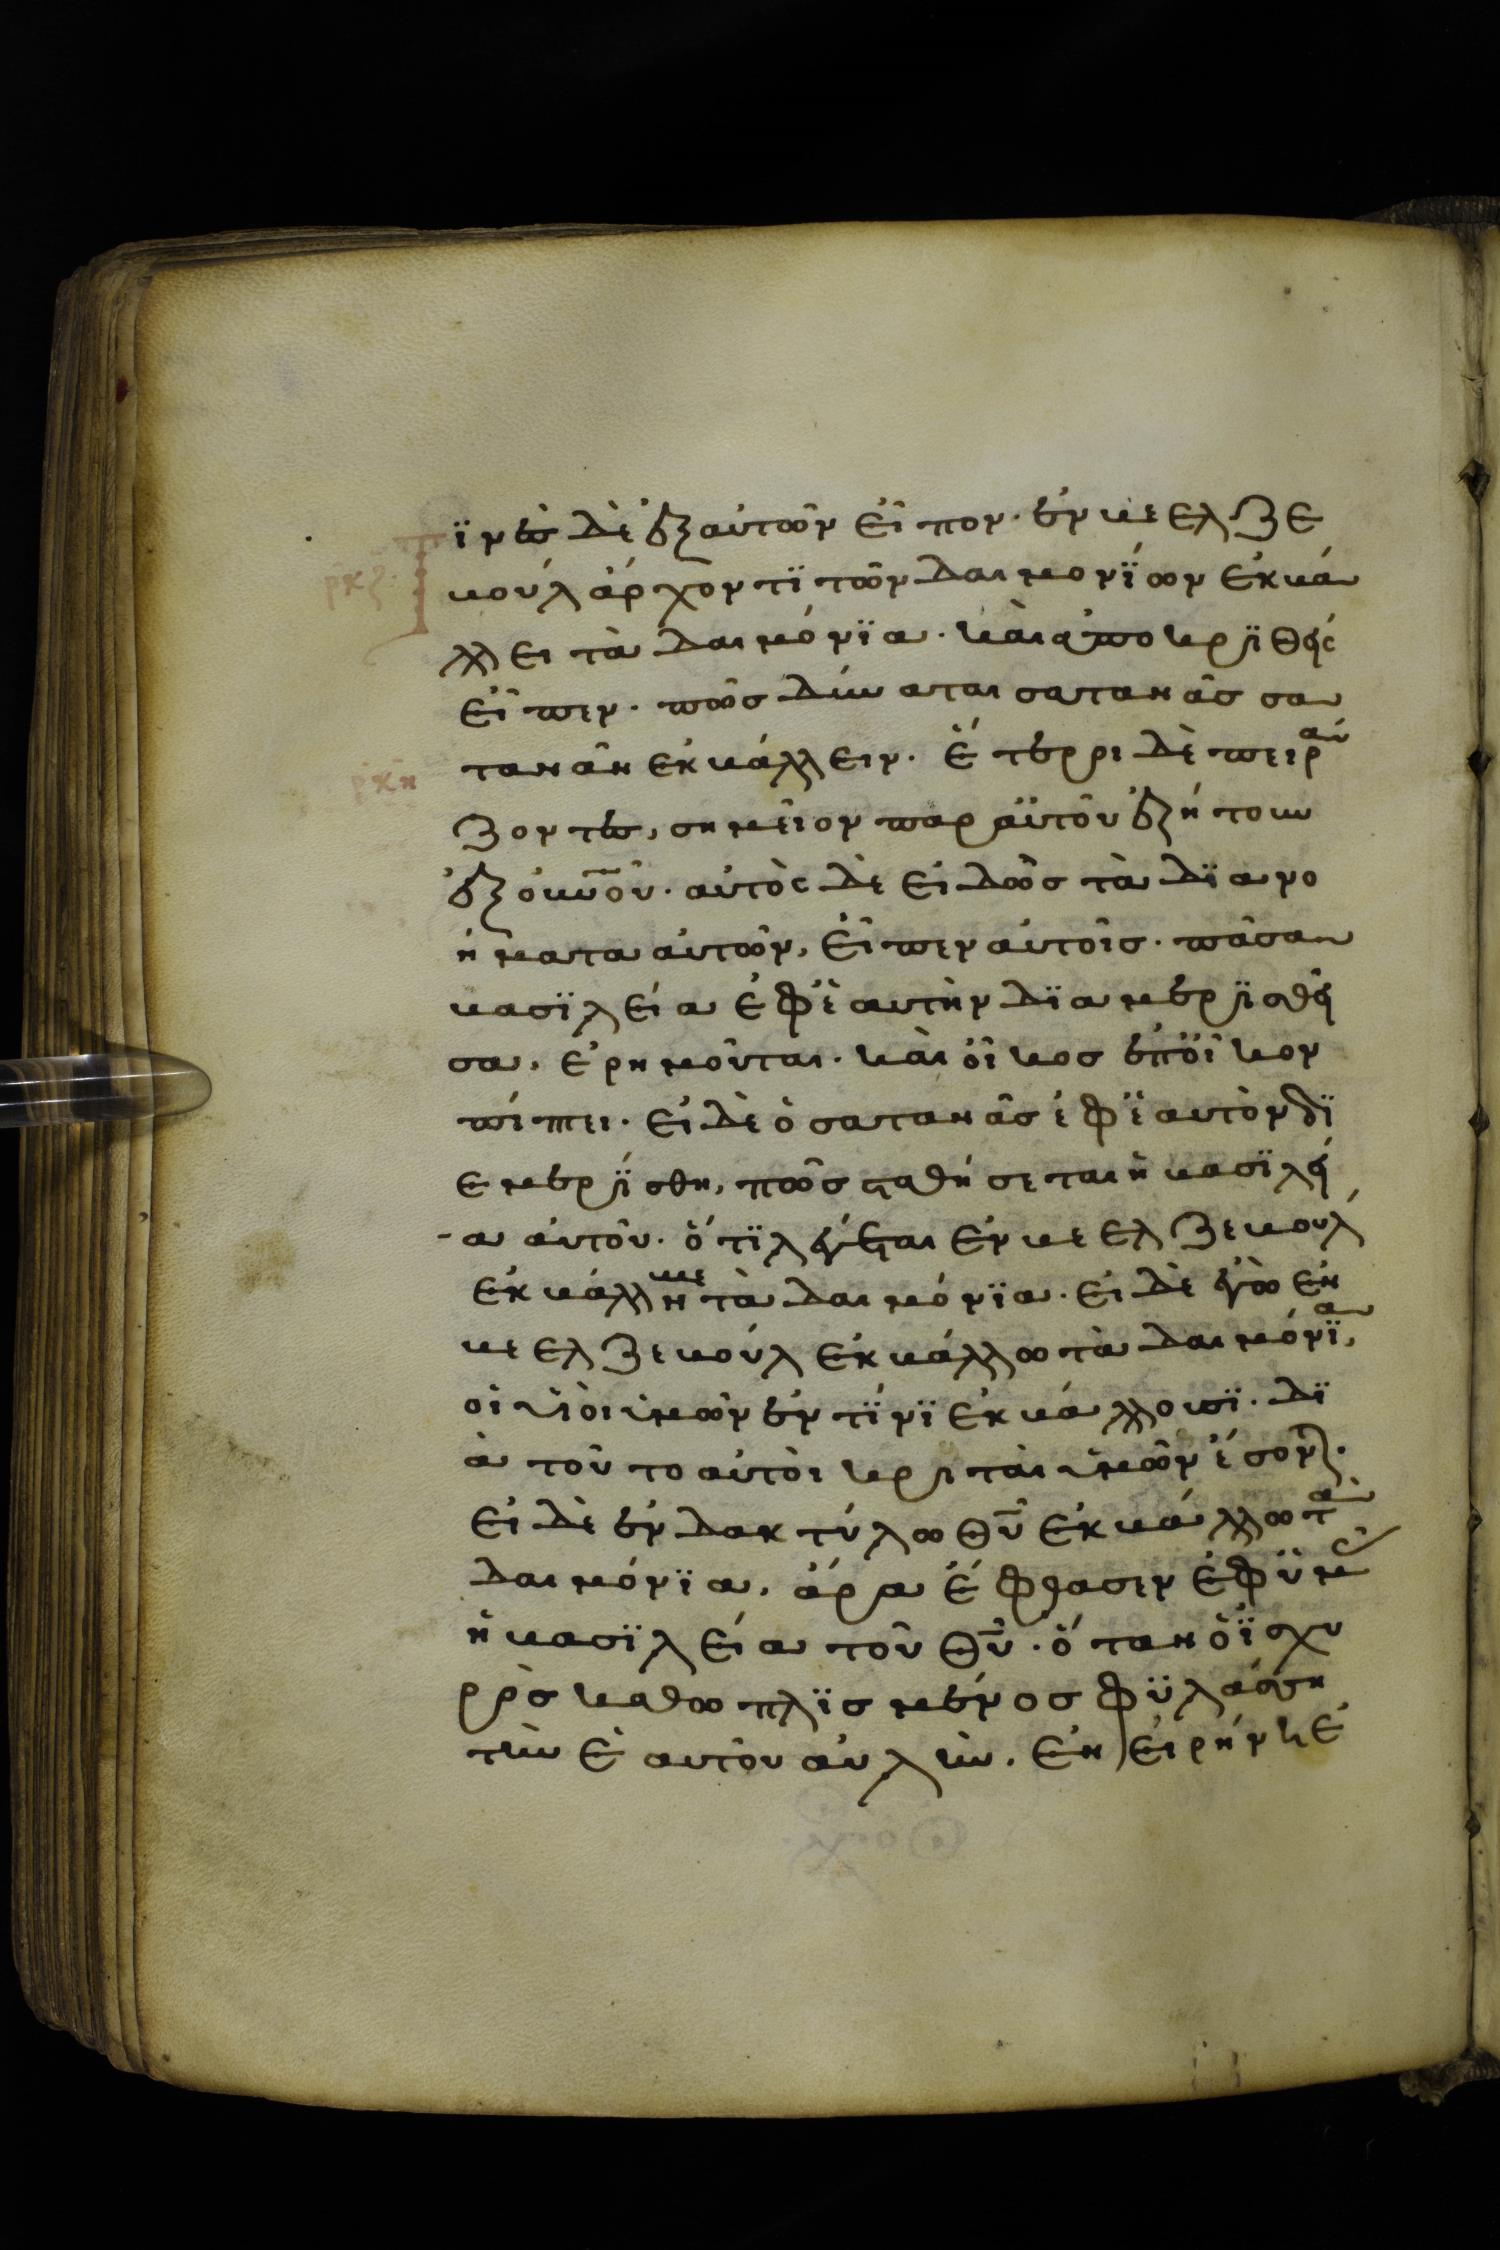 Τϊνὲς δὲ ἐξ αὐτῶν εἶπον· ἐν βεελζε
ρκζ· βοὺλ ἄρχοντϊ τῶν δαιμονϊων ἐκβά
λλει τὰ δαιμόνϊα· καὶ ἀποκρϊθεὶς
εἶπεν· πῶς δύναται σατανᾶς σα
ρκη τανᾶν ἐκβάλλειν· ἕτεροι δὲ πειρά
ζοντες, σημεῖον παρ αὐτοῦ ἐζήτουν
ἐξ οὐνοῦ· αὐτὸς δὲ εἰδὼς τὰ δϊανο
ήματα αὐτῶν, εἶπεν αὐτοῖς· πᾶσα
βασϊλεία ἐφ' ἑαυτὴν δϊαμερϊσθεῖ
σα, ἐρημοῦται· καὶ οἶκος ἐπ' οἶκον
πίπτει· εἰ δὲ ὁ σατανᾶς ἐφ' ἑαυτὸν δϊ
εμερίσθη, πῶς σταθήσεται ἡ βασϊλεί
α αὐτοῦ· ὅτϊ λέγεται ἐν βεελζεβουλ
ἐκβάλλειν με τὰ δαιμόνϊα· εἰ δὲ ἐγὼ ἐν
βεελζεβοὺλ ἐκβάλλω τὰ δαιμόνϊα,
οἱ υἱοι ὑμῶν ἐν τϊνϊ ἐκβάλλουσϊ· δϊ
ὰ τοῦτο αὐτοὶ κριταὶ ὑμῶν ἔσονται·
εἰ δὲ ἐν δακτύλω θῦ ἐκβάλλω τὰ
δαιμόνϊα, ἄρα ἔφθασεν ἐφ' ὑμᾶς
ἡ βασϊλεία τοῦ θῦ· ὅταν ὁ ϊσχυ
ρὸς καθωπλϊσμένος φϋλάσση
τὴν ἑαυτοῦ αὐλὴν, ἐν εἰρήνη ἐ